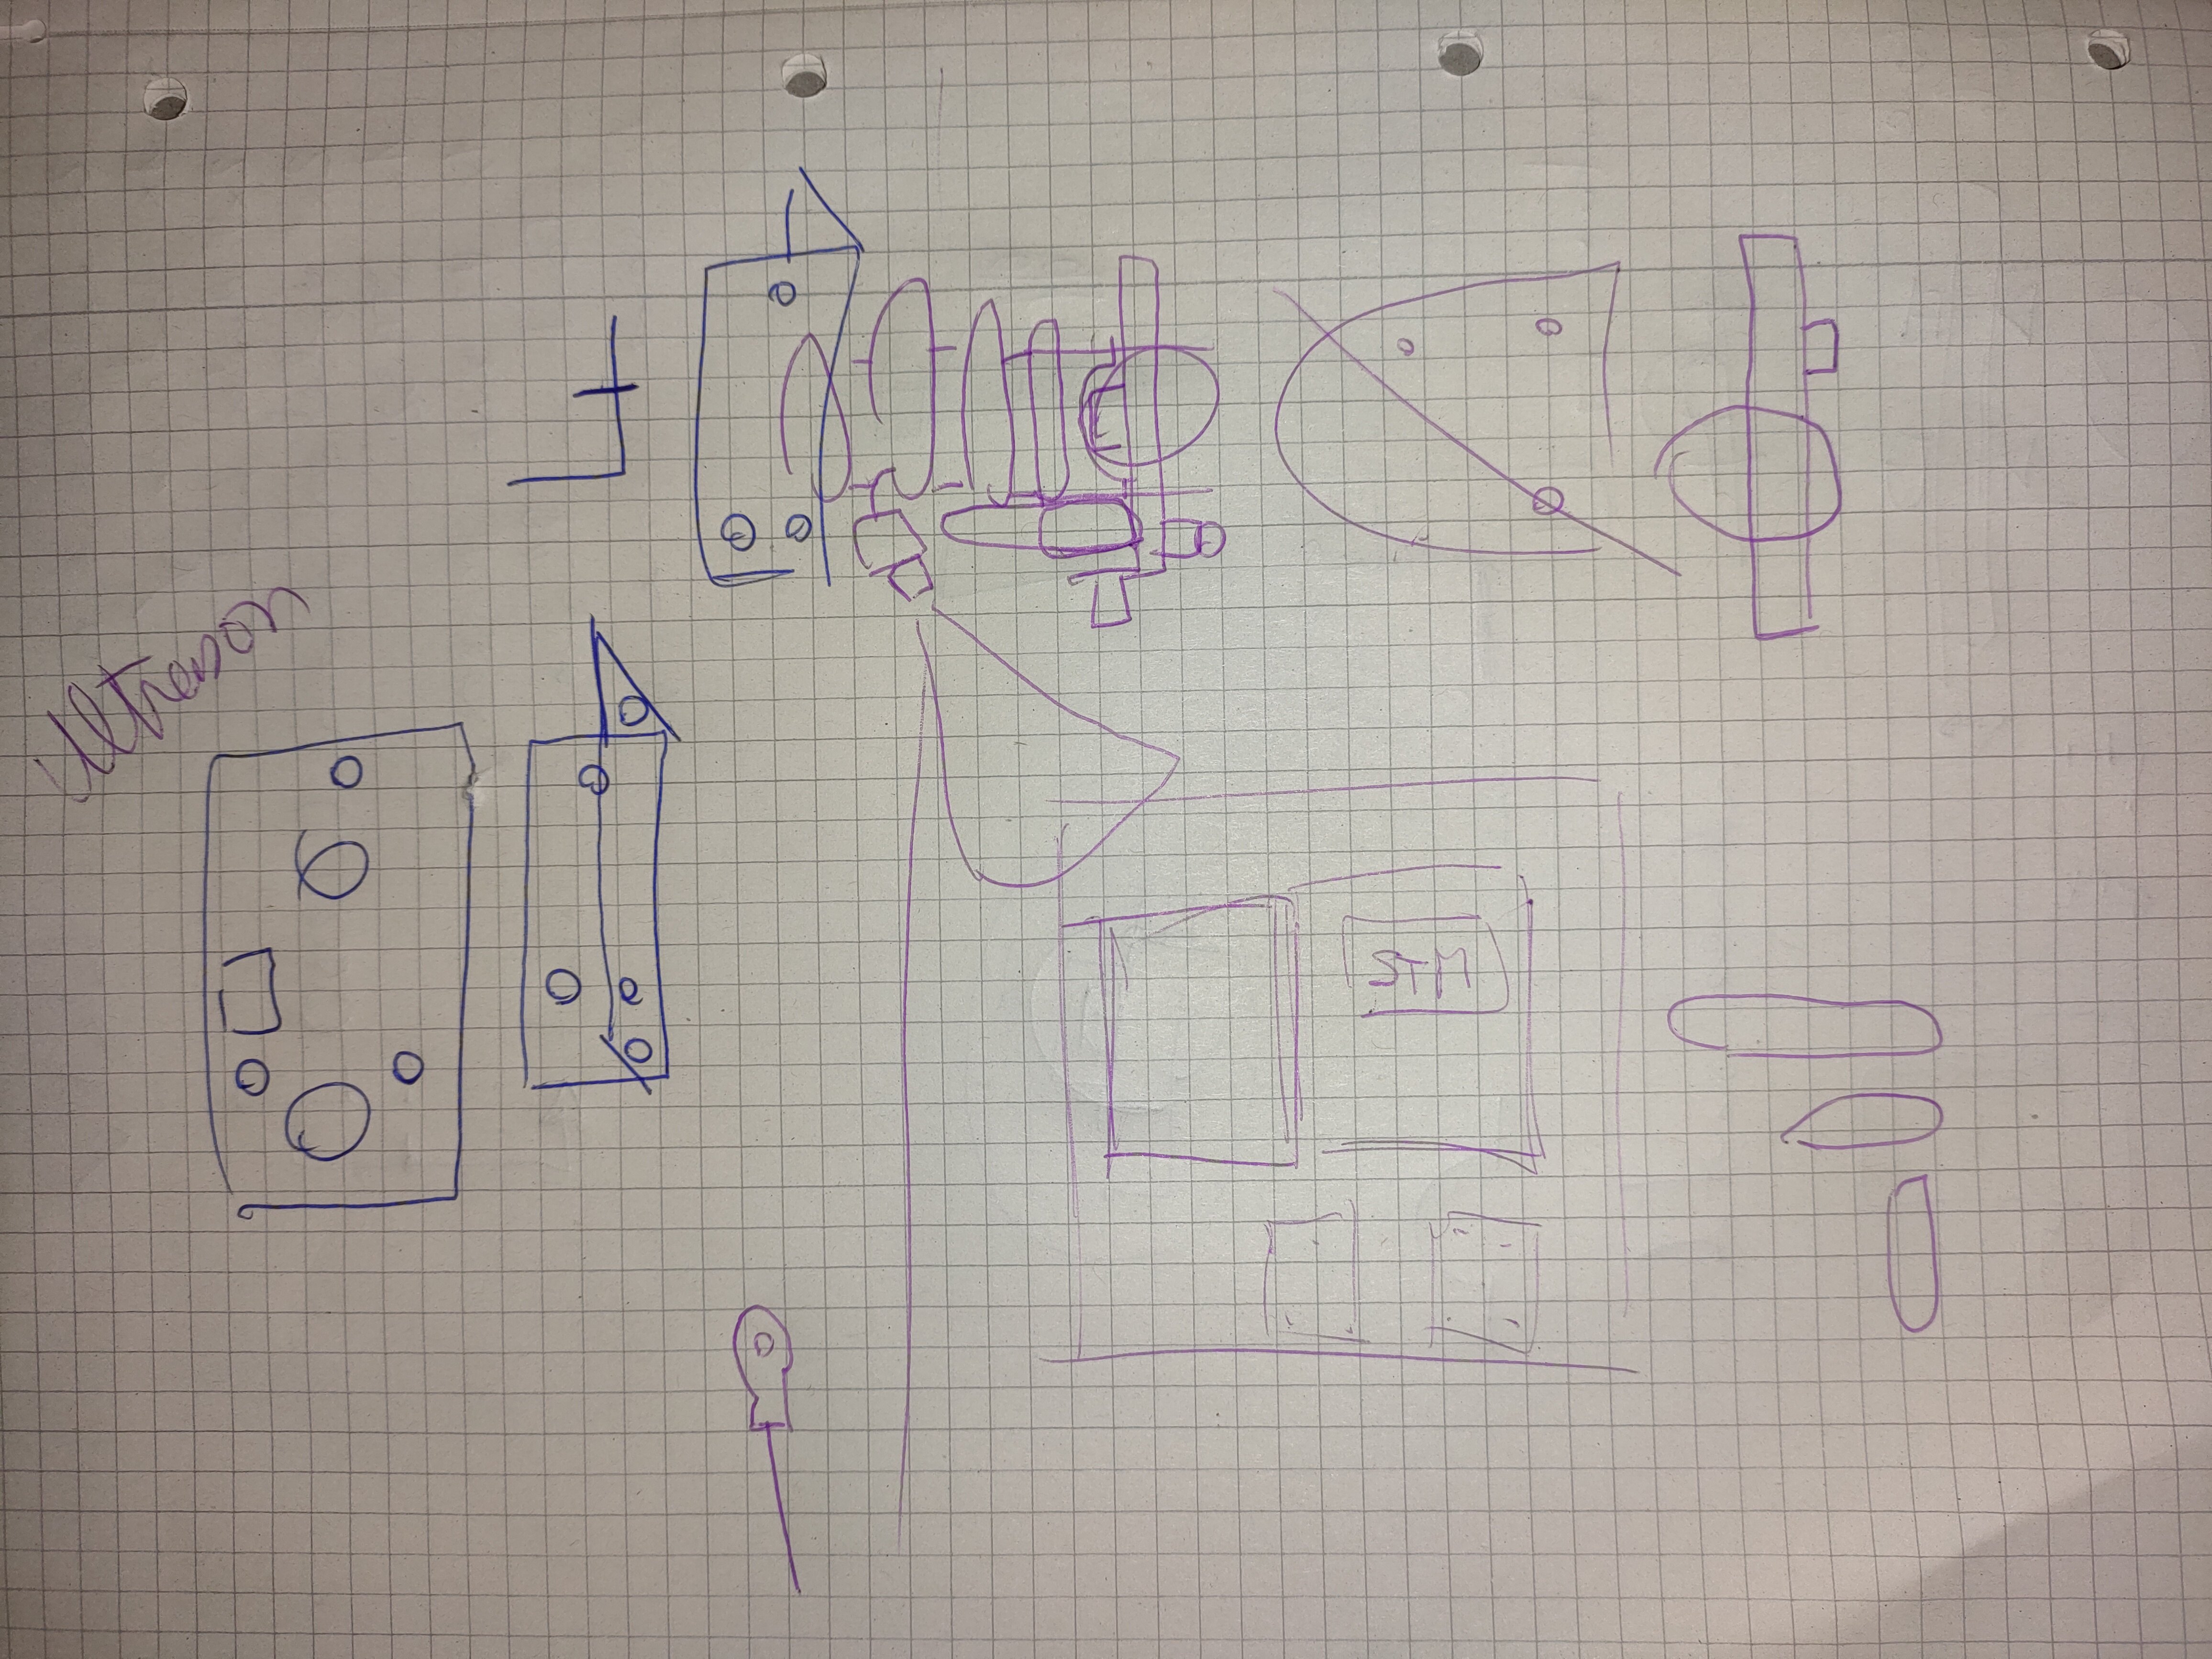 Ultrason
STM